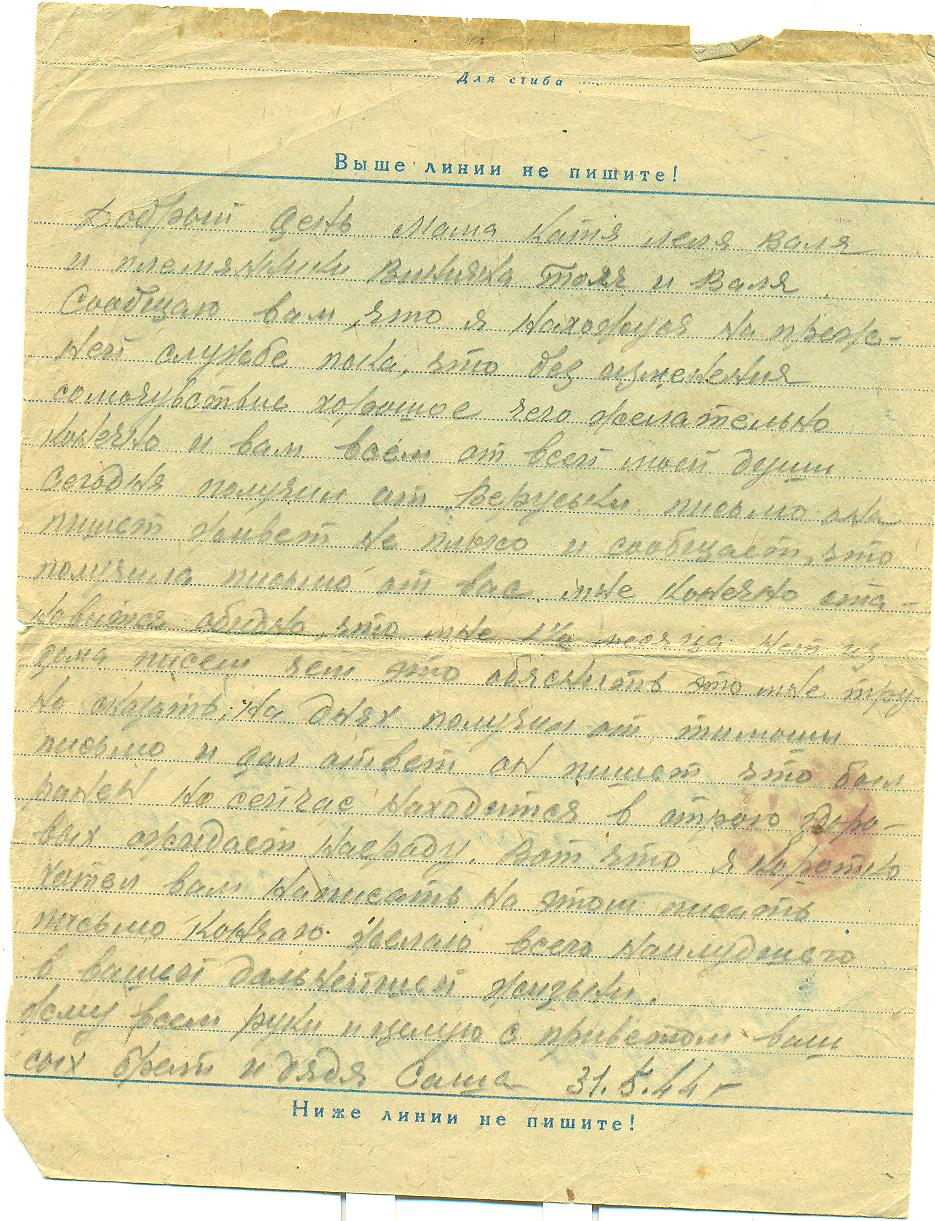 Для сгиба
Выше линии не пишите!
Добрый день мама Катя леля Валя
и племянники Толя и Валя
Сообщаю вам что я нахожуся на преж-
ней службе пока, что без изменения
самочувствие хорошое чего желательно
конечно и вам всем от всей моей души
сегодня получил от Веруськи письмо она
пишет живет не плохо и сообщает, что
получила письмо от вас мне конечно ста-
новится обидна, что мне месяца нет из
дома писем чем это объяснить это мне тру
но сказать, на днях получил от тимоши
письмо и дал ответ он пишет что был
ранен но сейчас находится в строю здоро-
вых ожидает награду. Вот что я коротко
хотел вам написать на этом писать
письмо кончаю желаю всего наилудшего
в вашей дальнейшей жизьни.
Жму всем руки и целую с приветом ваш
сын брат и дядя Саша 31.5.44 г
Ниже линии не пишите!